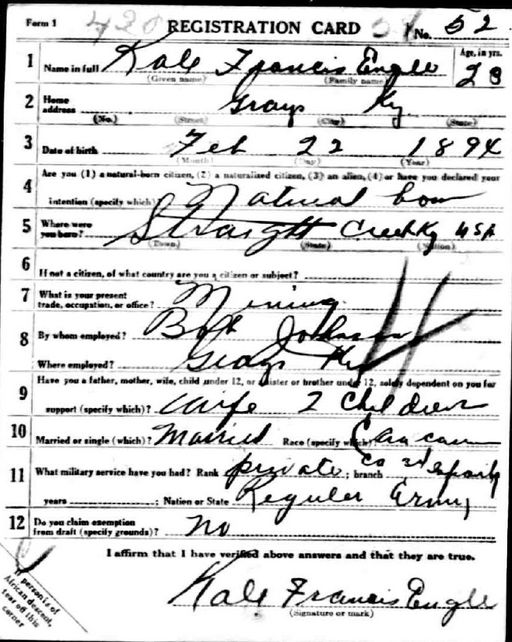 Form 1 420 REGISTRATION CARD No. 52
1 Name in full Kale Francis Engle Age, in yrs. 23
(Given name) (Family name)
2 Home address Grays Ky
(No.) (Street) (City) (State)
3 Date of birth Feb 22 1894
(Month) (Day) (Year)
4 Are you (1) a natural-born citizen, (2) a naturalized citizen, (3) an alien, (4) or have you declared your
intention (specify which)? Natural born
5 Where were you born? Straight Creek Ky USA
(Town) (State) (Nation)
6 If not a citizen, of what country are you a citizen or subject?
7 What is your present trade, occupation, or office? Mining
8 By whom employed? Bob Johnson
Where employed? Grays Ky
9 Have you a father, mother, wife, child under 12, or a sister or brother under 12, solely dependent on you for
support (specify which)? Wife 2 Children
10 Married or single (which)? Married Race (specify which)?
11 What military service have you had? Rank private ; branch
years ; Nation or State Reguler Army
12 Do you claim exemption from draft (specify grounds)? No
I affirm that I have verified above answers and that they are true.
Kale Francis Engle
(Signature or mark)
If person is of
African descent,
tear off this
corner.